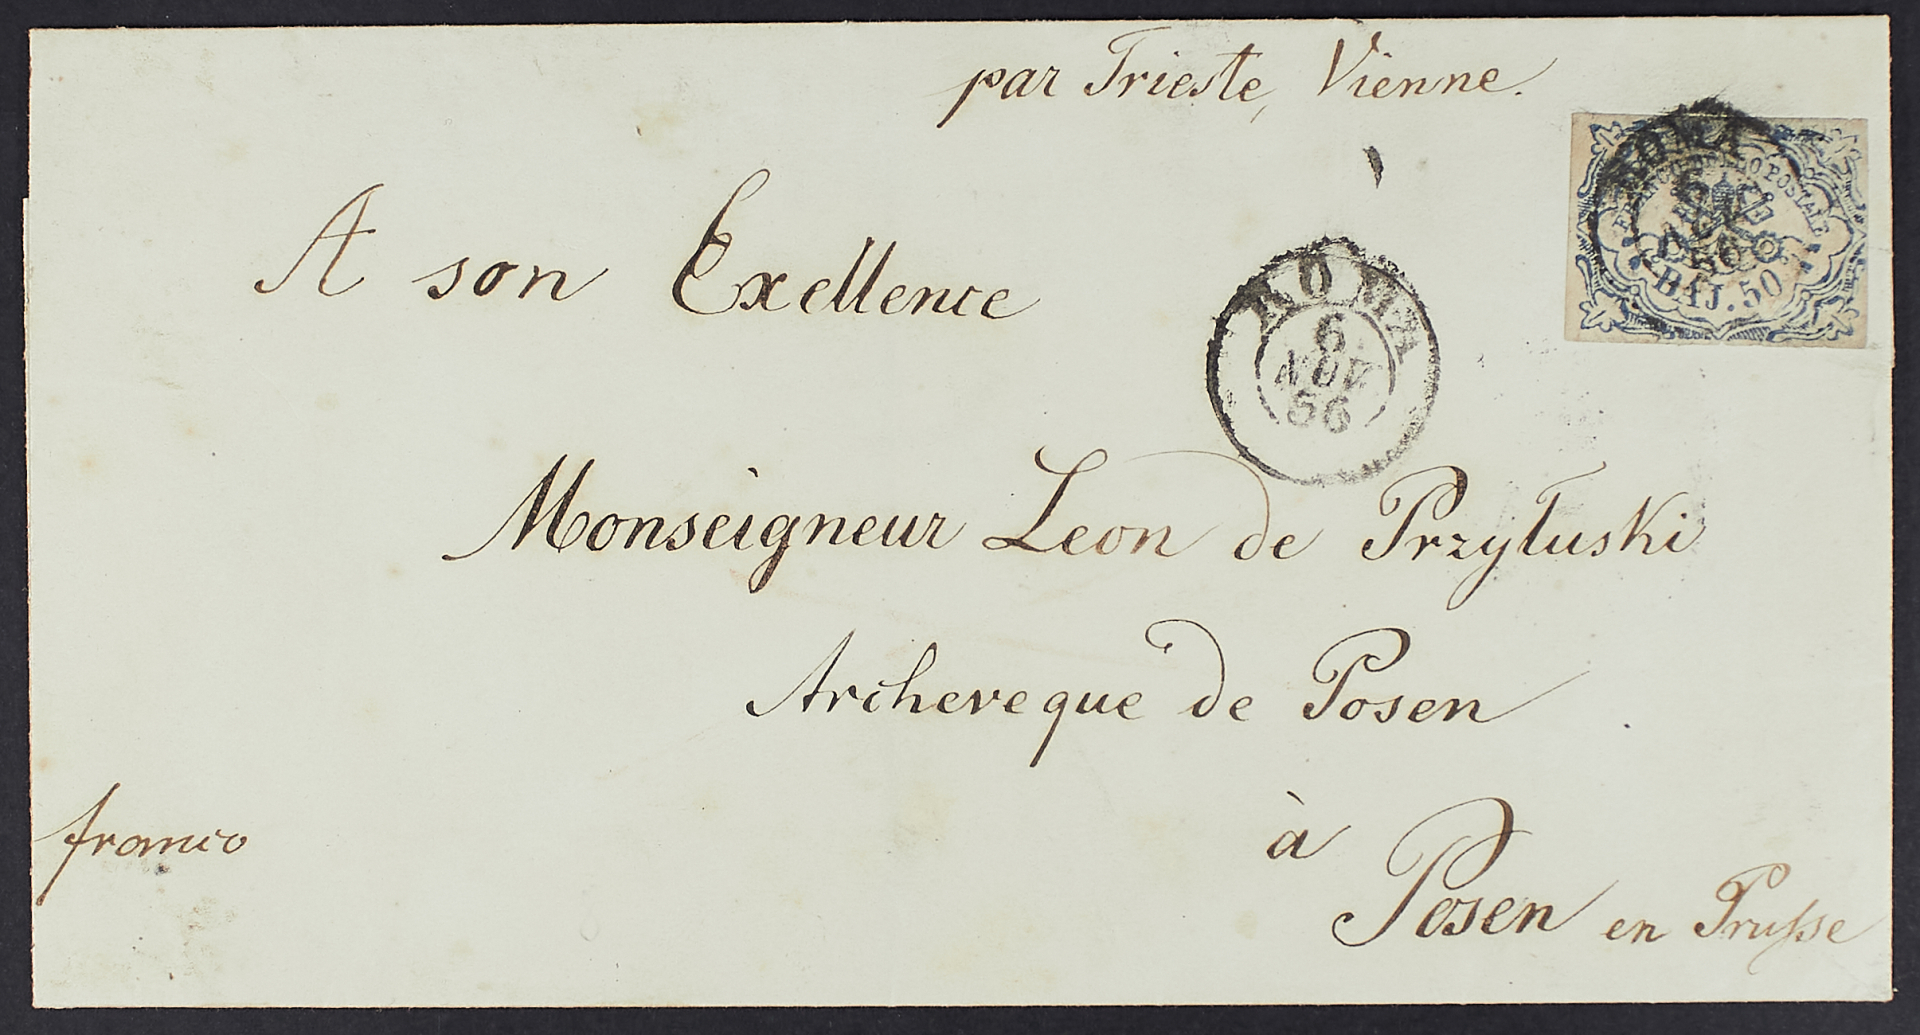 par Trieste, Vienne.
FRANCO BOLLO POSTALE
BAJ. 50
ROMA
NOV
56
A son Exellence
ROMA
6
NOV
56
Monseigneur Leon de Przyłuski
Archeveque de Posen
franco
à
Posen en Prusse